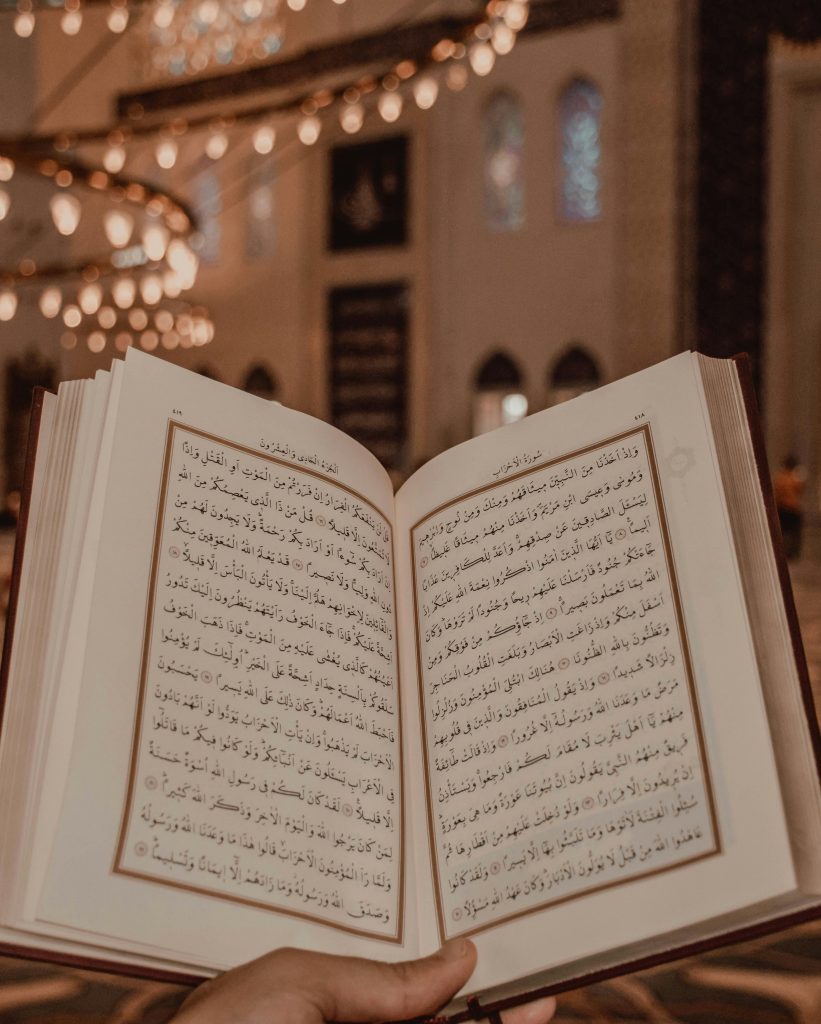 ٤١٨
سُورَةُ الْاَحْزَابِ
وَاِذْ اَخَذْنَا مِنَ النَّبِيّنَ مِيثَاقَهُمْ وَمِنْكَ وَمِنْ نُوحٍ وَاِبْرٰهِيمَ
وَمُوسٰى وَعِيسَى ابْنِ مَرْيَمَ وَاَخَذْنَا مِنْهُمْ مِيثَاقًا غَلِيظًاۙ ﴿٧﴾
لِيَسْـَٔلَ الصَّادِقِينَ عَنْ صِدْقِهِمْۚ وَاَعَدَّ لِلْكَافِرِينَ عَذَابًا
اَلِيمًا۟ ﴿٨﴾ يَٓا اَيُّهَا الَّذِينَ اٰمَنُوا اذْكُرُوا نِعْمَةَ اللّٰهِ عَلَيْكُمْ اِذْ
جَٓاءَتْكُمْ جُنُودٌ فَاَرْسَلْنَا عَلَيْهِمْ رِيحًا وَجُنُودًا لَمْ تَرَوْهَاۜ وَكَانَ
اللّٰهُ بِمَا تَعْمَلُونَ بَصِيرًاۚ ﴿٩﴾ اِذْ جَٓاؤُكُمْ مِنْ فَوْقِكُمْ وَمِنْ
اَسْفَلَ مِنْكُمْ وَاِذْ زَاغَتِ الْاَبْصَارُ وَبَلَغَتِ الْقُلُوبُ الْحَنَاجِرَ
وَتَظُنُّونَ بِاللّٰهِ الظُّنُونَا۠ ﴿١٠﴾ هُنَالِكَ ابْتُلِيَ الْمُؤْمِنُونَ وَزُلْزِلُوا
زِلْزَالًا شَدِيدًا ﴿١١﴾ وَاِذْ يَقُولُ الْمُنَافِقُونَ وَالَّذِينَ فِي قُلُوبِهِمْ
مَرَضٌ مَا وَعَدَنَا اللّٰهُ وَرَسُولُهُٓ اِلَّا غُرُورًا ﴿١٢﴾ وَاِذْ قَالَتْ طَٓائِفَةٌ
مِنْهُمْ يَٓا اَهْلَ يَثْرِبَ لَا مُقَامَ لَكُمْ فَارْجِعُواۚ وَيَسْتَأْذِنُ
فَرِيقٌ مِنْهُمُ النَّبِيَّ يَقُولُونَ اِنَّ بُيُوتَنَا عَوْرَةٌ وَمَا هِيَ بِعَوْرَةٍۚ
اِنْ يُرِيدُونَ اِلَّا فِرَارًا ﴿١٣﴾ وَلَوْ دُخِلَتْ عَلَيْهِمْ مِنْ اَقْطَارِهَا ثُمَّ
سُئِلُوا الْفِتْنَةَ لَاٰتَوْهَا وَمَا تَلَبَّثُوا بِهَٓا اِلَّا يَسِيرًا ﴿١٤﴾ وَلَقَدْ كَانُوا
عَاهَدُوا اللّٰهَ مِنْ قَبْلُ لَا يُوَلُّونَ الْاَدْبَارَۜ وَكَانَ عَهْدُ اللّٰهِ مَسْؤُلًا ﴿١٥﴾
٤١٩
اَلْجُزْءُ الْحَادِى وَالْعِشْرُونَ
قُلْ لَنْ يَنْفَعَكُمُ الْفِرَارُ اِنْ فَرَرْتُمْ مِنَ الْمَوْتِ اَوِ الْقَتْلِ وَاِذًا
لَا تُمَتَّعُونَ اِلَّا قَلِيلًا ﴿١٦﴾ قُلْ مَنْ ذَا الَّذِي يَعْصِمُكُمْ مِنَ اللّٰهِ
اِنْ اَرَادَ بِكُمْ سُٓوءًا اَوْ اَرَادَ بِكُمْ رَحْمَةًۜ وَلَا يَجِدُونَ لَهُمْ مِنْ
دُونِ اللّٰهِ وَلِيًّا وَلَا نَصِيرًا ﴿١٧﴾ قَدْ يَعْلَمُ اللّٰهُ الْمُعَوِّقِينَ مِنْكُمْ
وَالْقَٓائِلِينَ لِاِخْوَانِهِمْ هَلُمَّ اِلَيْنَاۚ وَلَا يَأْتُونَ الْبَأْسَ اِلَّا قَلِيلًاۙ ﴿١٨﴾
اَشِحَّةً عَلَيْكُمْۚ فَاِذَا جَٓاءَ الْخَوْفُ رَاَيْتَهُمْ يَنْظُرُونَ اِلَيْكَ تَدُورُ
اَعْيُنُهُمْ كَالَّذِي يُغْشٰى عَلَيْهِ مِنَ الْمَوْتِۚ فَاِذَا ذَهَبَ الْخَوْفُ
سَلَقُوكُمْ بِاَلْسِنَةٍ حِدَادٍ اَشِحَّةً عَلَى الْخَيْرِۜ اُولٰٓئِكَ لَمْ يُؤْمِنُوا
فَاَحْبَطَ اللّٰهُ اَعْمَالَهُمْۜ وَكَانَ ذٰلِكَ عَلَى اللّٰهِ يَسِيرًا ﴿١٩﴾ يَحْسَبُونَ
الْاَحْزَابَ لَمْ يَذْهَبُواۚ وَاِنْ يَأْتِ الْاَحْزَابُ يَوَدُّوا لَوْ اَنَّهُمْ بَادُونَ
فِي الْاَعْرَابِ يَسْـَٔلُونَ عَنْ اَنْبَٓائِكُمْۜ وَلَوْ كَانُوا فِيكُمْ مَا قَاتَلُٓوا
اِلَّا قَلِيلًا۟ ﴿٢٠﴾ لَقَدْ كَانَ لَكُمْ فِي رَسُولِ اللّٰهِ اُسْوَةٌ حَسَنَةٌ
لِمَنْ كَانَ يَرْجُوا اللّٰهَ وَالْيَوْمَ الْاٰخِرَ وَذَكَرَ اللّٰهَ كَثِيرًاۜ ﴿٢١﴾
وَلَمَّا رَاَ الْمُؤْمِنُونَ الْاَحْزَابَۙ قَالُوا هٰذَا مَا وَعَدَنَا اللّٰهُ وَرَسُولُهُ
وَصَدَقَ اللّٰهُ وَرَسُولُهُۘ وَمَا زَادَهُمْ اِلَّٓا اِيمَانًا وَتَسْلِيمًاۜ ﴿٢٢﴾